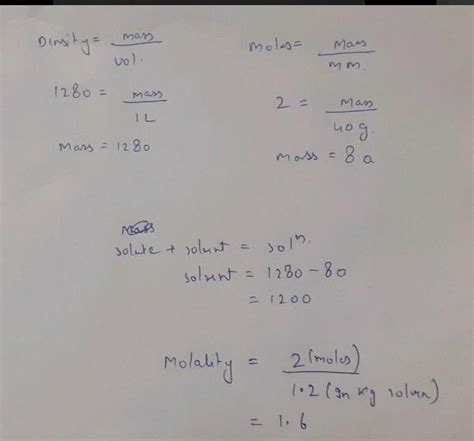 Density = mass / vol.
1280 = mass / 1L
mass = 1280
moles = Mass / mm.
2 = Mass / 40g.
mass = 80
Mass
solute + solvent = solⁿ.
solvent = 1280 - 80
= 1200
Molality = 2 (moles) / 1.2 (In kg solven)
= 1.6